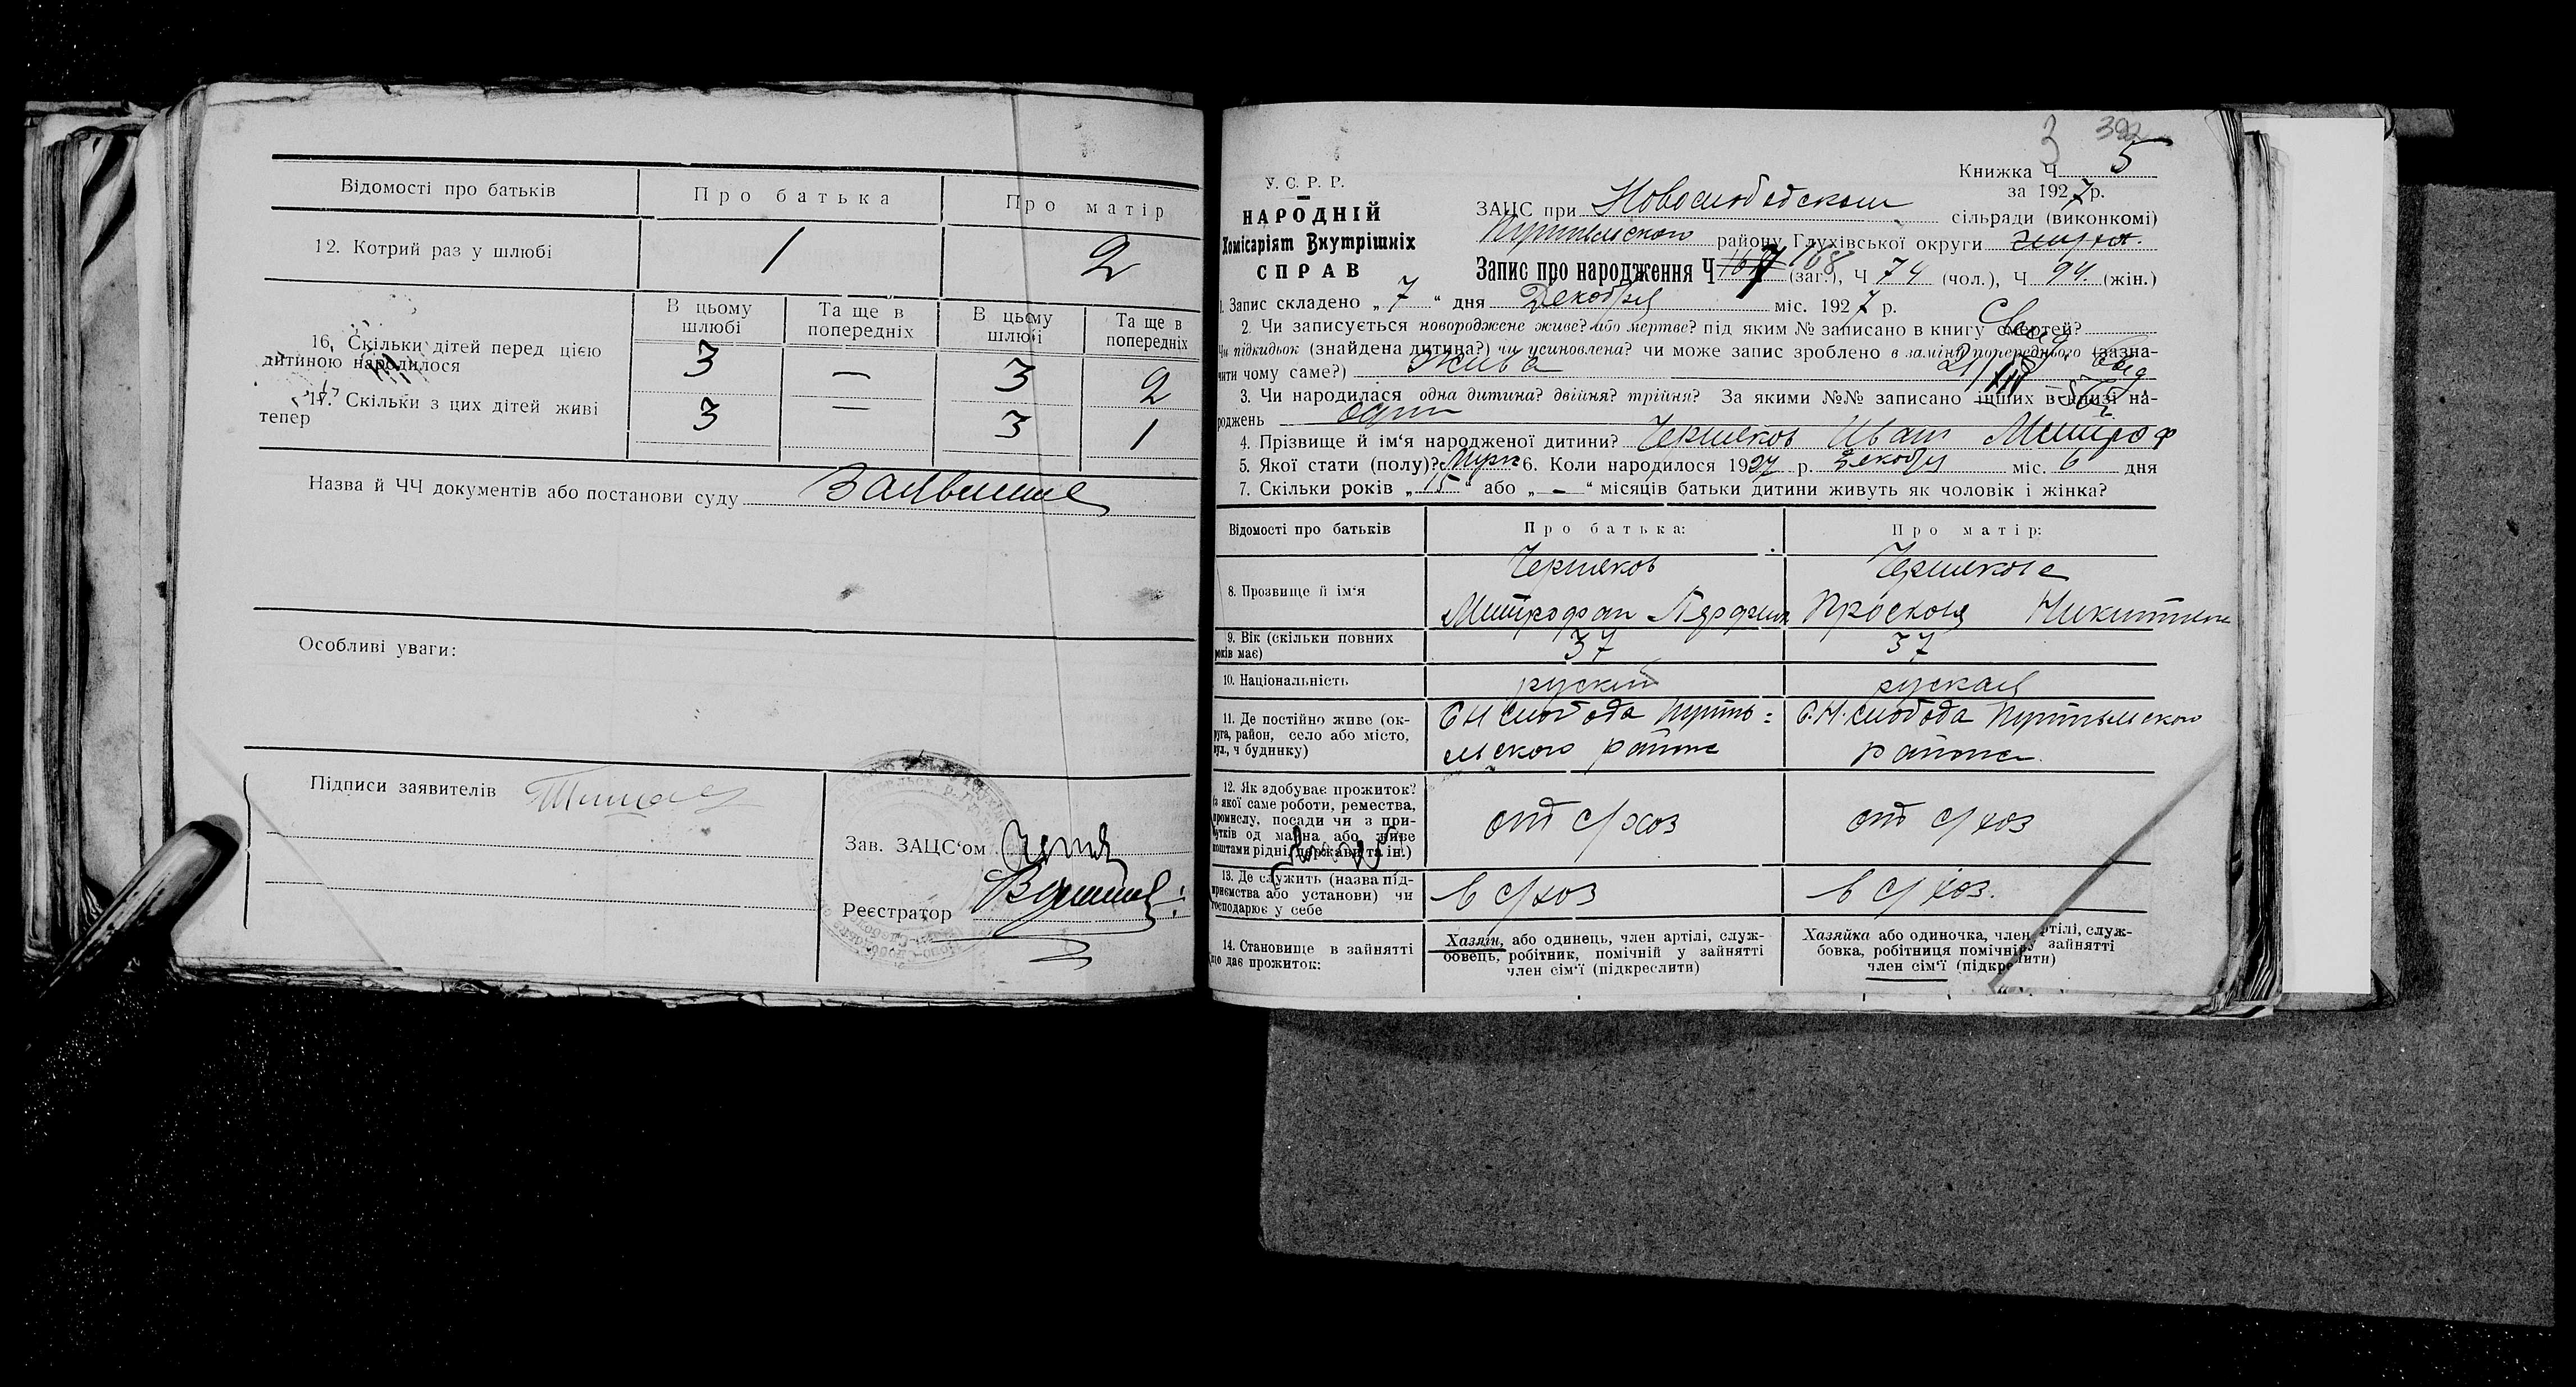 Відомості про батьків
Про батька
Про матір
12. Котрий раз у шлюбі
1
2
В цьому шлюбі
Та ще в попередніх
В цьому шлюбі
Та ще в попередніх
16. Скільки дітей перед цією
дитиною народилося
3 — 3 2
17. Скільки з цих дітей живі
тепер
3 — 3 1
Назва й ЧЧ документів або постанови суду
Особливі уваги:
Підписи заявителів
Зав. ЗАЦС'ом
Реєстратор
3 392
Книжка Ч 5
за 1927 р.
У. С. Р. Р.
НАРОДНІЙ
Комісаріят Внутрішніх
СПРАВ
ЗАЦС при Новослободском сільради (виконкомі)
Путивльского району Глухівської округи
Запис про народження Ч 167 168 (заг.), Ч 74 (чол.), Ч 94 (жін.)
1. Запис складено „ 7 “ дня Декабря міс. 1927 р.
2. Чи записується новороджене живе? або мертве? під яким № записано в книгу смертей?
Чи підкидьок (знайдена дитина?) чи усиновлена? чи може запис зроблено в заміну попереднього (зазна-
чити чому саме?) Жива
3. Чи народилася одна дитина? двійня? трійня? За якими №№ записано інших в книзі на-
роджень один
4. Прізвище й ім'я народженої дитини? Черняков Иван Митроф
5. Якої стати (полу)? Муж 6. Коли народилося 1927 р. Декабря міс. 6 дня
7. Скільки років „ 15 “ або „ — “ місяців батьки дитини живуть як чоловік і жінка?
Відомості про батьків
Про батька:
Про матір:
8. Прозвище й ім'я
Черняков
Митрофан
Чернякова
Просковя Никитична
9. Вік (скільки повних
років має)
37
37
10. Національність
руский
руская
11. Де постійно живе (ок-
руга, район, село або місто,
вул., ч будинку)
С Н Слобода Путив=
льского района
С. Н. Слобода Путивльского
района
12. Як здобуває прожиток?
(з якої саме роботи, ремества,
промислу, посади чи з при-
бутків од майна або живе
коштами рідні, держави та ін.)
от с/хоз
от с/хоз
13. Де служить (назва під-
приємства або установи) чи
господарює у себе
в с/хоз
в с/хоз.
14. Становище в зайнятті
що дає прожиток:
Хазяїн, або одинець, член артілі, служ-
бовець, робітник, помічній у зайнятті
член сім'ї (підкреслити)
Хазяйка або одиночка, член артілі, служ-
бовка, робітниця помічній у зайнятті
член сім'ї (підкреслити)